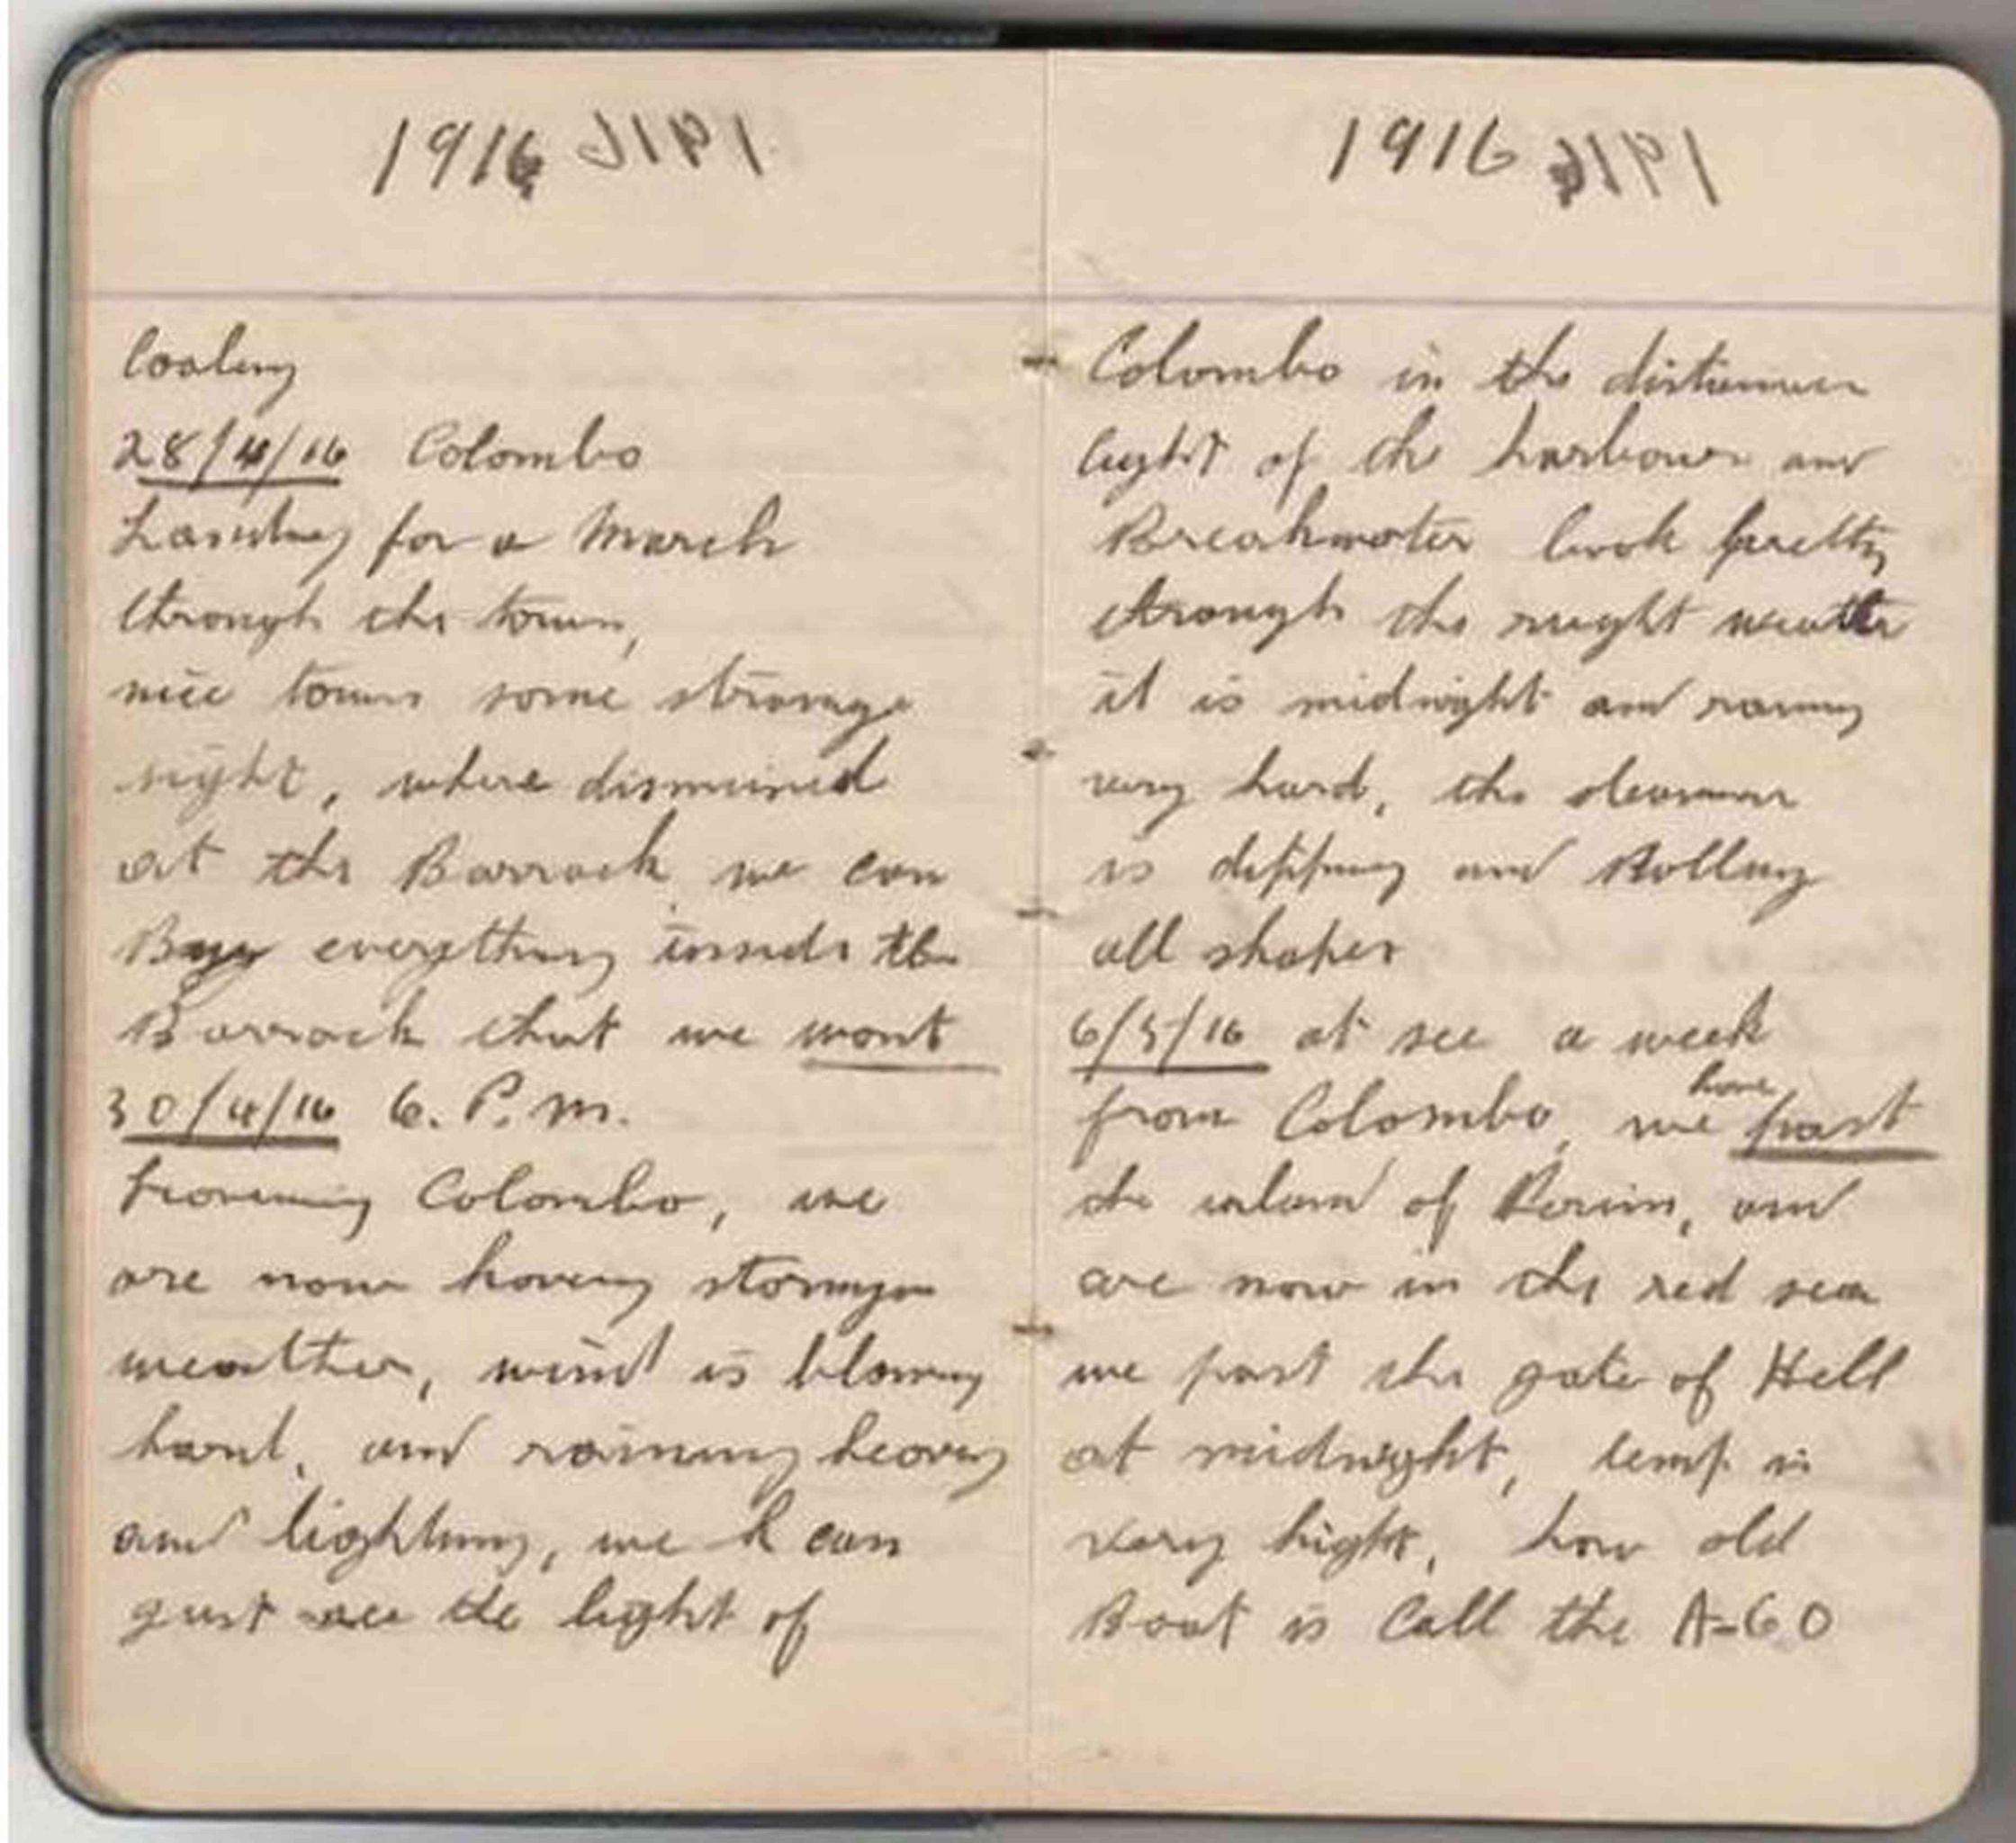 1916
Coaling
28/4/16 Colombo
Landing for a March
through the town,
nice town some strange
sight, where dismissed
at the Barrack we can
Buy everything inside the
Barrack that we want
30/4/16 6. P.m.
Leaveing Colombo, we
are now having stormy
weather, wind is blowing
hard, and raining heavy
and lightning, we can
just see the light of
1916
Colombo in the
light of the harbour and
Breakwater look pretty
through the night
it is midnight and raining
very hard, the steamer
is dipping and Rolling
all shapes
6/5/16 at see a week
from Colombo, we have past
the island of Perim, and
are now in the red sea
we past the gate of Hell
at midnight, temp is
very hight, how old
Boat is Call the A-60